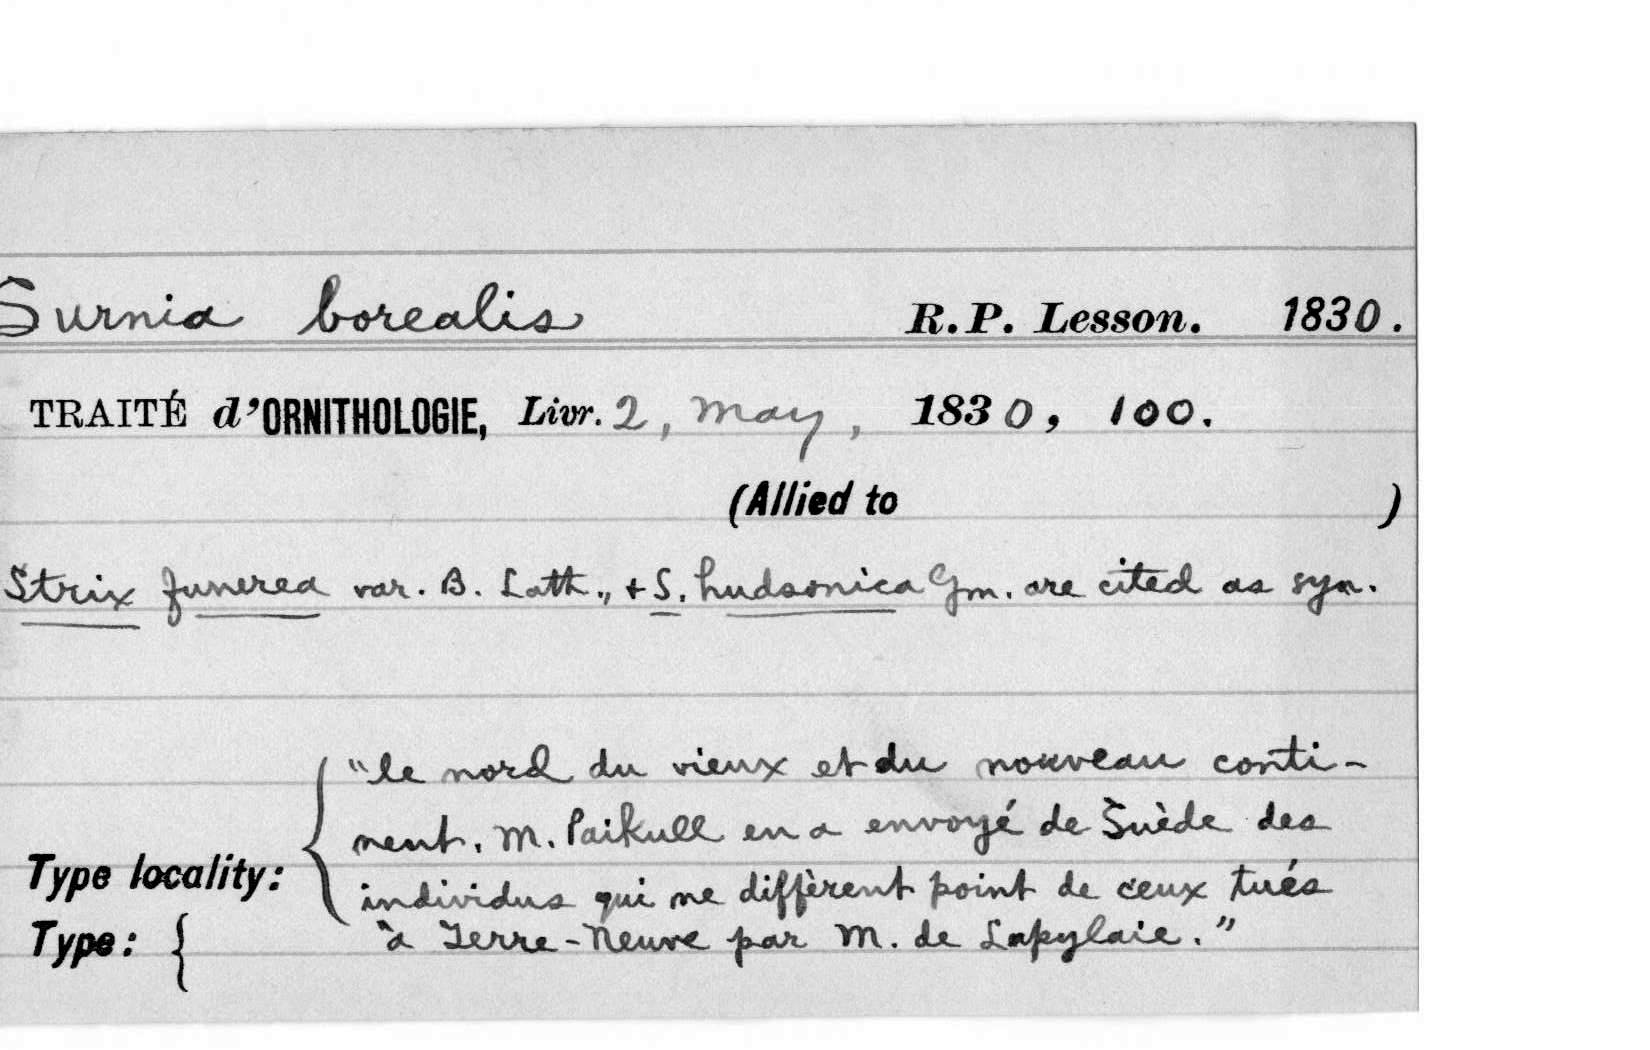 Surnia borealis R.P. Lesson. 1830.
TRAITÉ d'ORNITHOLOGIE, Livr. 2, May, 1830, 100.
(Allied to )
Strix funerea var. B. Lath., + S. hudsonica Gm. are cited as syn.
"le nord du vieux et du nouveau conti-
nent. M. Paikull en a envoyé de Suède des
Type locality: { individus qui ne diffèrent point de ceux tués
Type: { à Terre-Neuve par M. de Lapylaie."